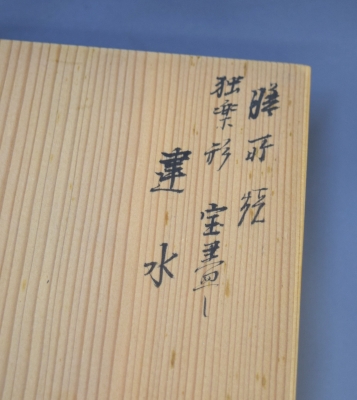 膳所焼
独楽形 宝畫し
建水